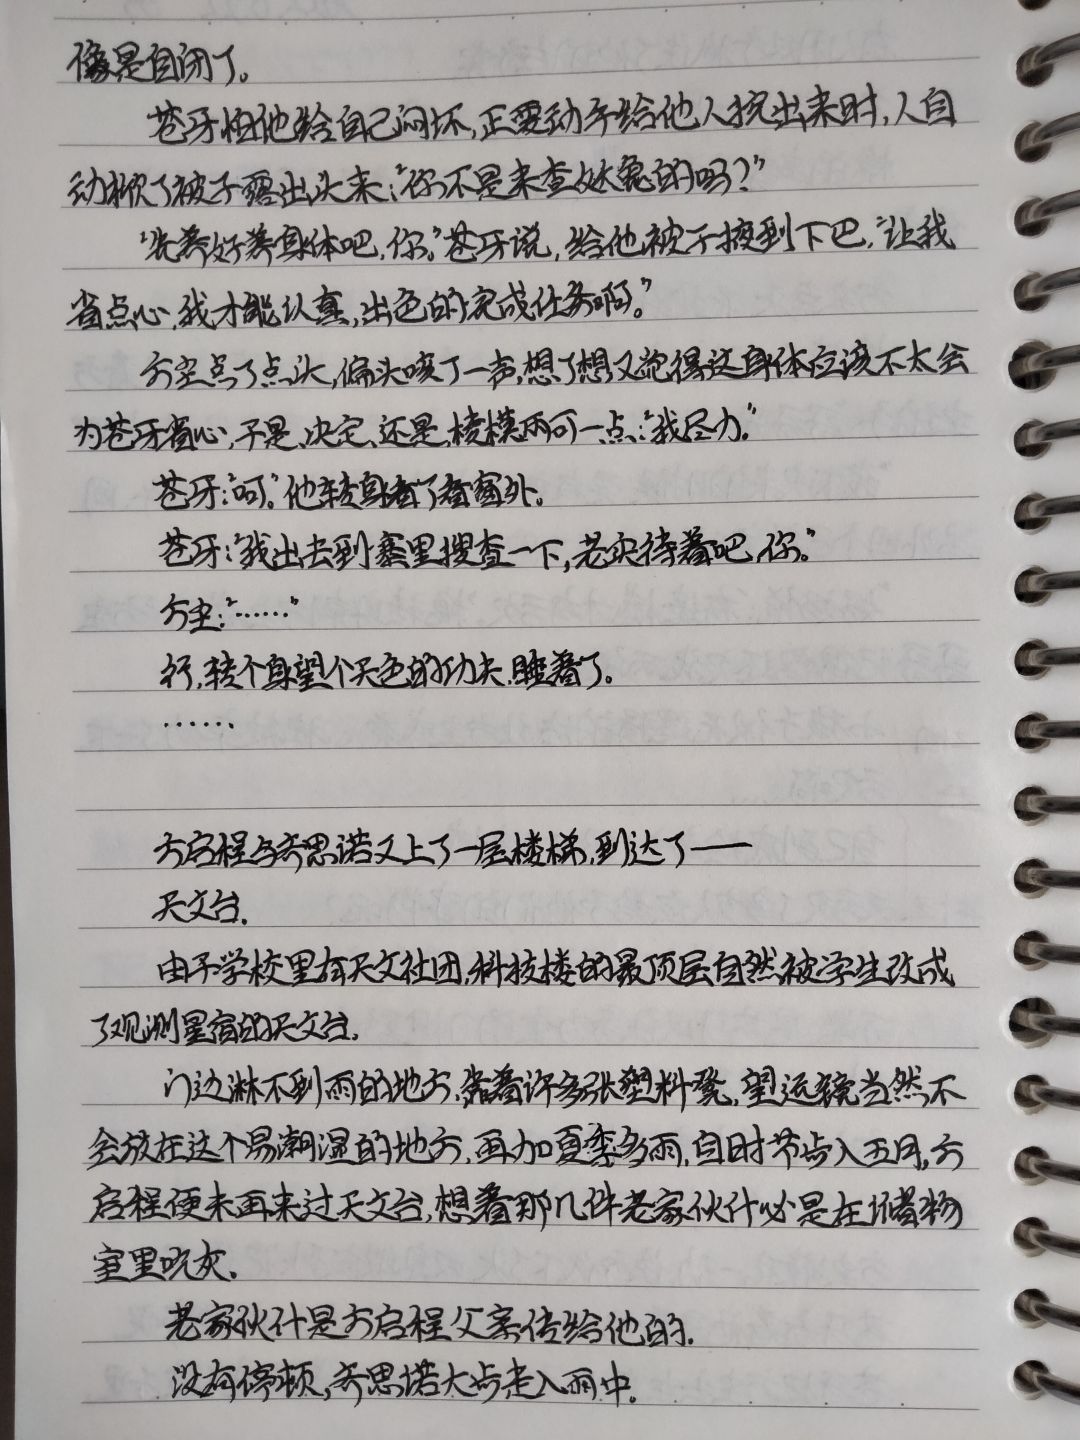 像是自闭了。
苍牙怕他给自己闷坏，正要动手给他人挖出来时，人自
动掀了被子露出头来：“你不是来查妖兔的吗？”
“先养好养身体吧，你。”苍牙说，给他被子掖到下巴，“让我
省点心，我才能认真、出色的完成任务啊。”
方尘点了点头，偏头咳了一声，想了想又觉得这身体应该不太会
为苍牙省心，于是、决定、还是、棱模两可一点：“我尽力。”
苍牙：“呵。”他转身看了看窗外。
苍牙：“我出去到寨里搜查一下，老实待着吧，你。”
方尘：“……”
行，转个身望个天色的功夫，睡着了。
……
方启程与齐思诺又上了一层楼梯，到达了——
天文台。
由于学校里有天文社团，科技楼的最顶层自然被学生改成
了观测星宿的天文台。
门边淋不到雨的地方，落着许多张塑料凳，望远镜当然不
会放在这个易潮湿的地方，再加夏季多雨，自时节步入五月，方
启程便未再来过天文台，想着那几件老家伙什必是在储物
室里吃灰。
老家伙什是方启程父亲传给他的。
没有停顿，齐思诺大步走入雨中。